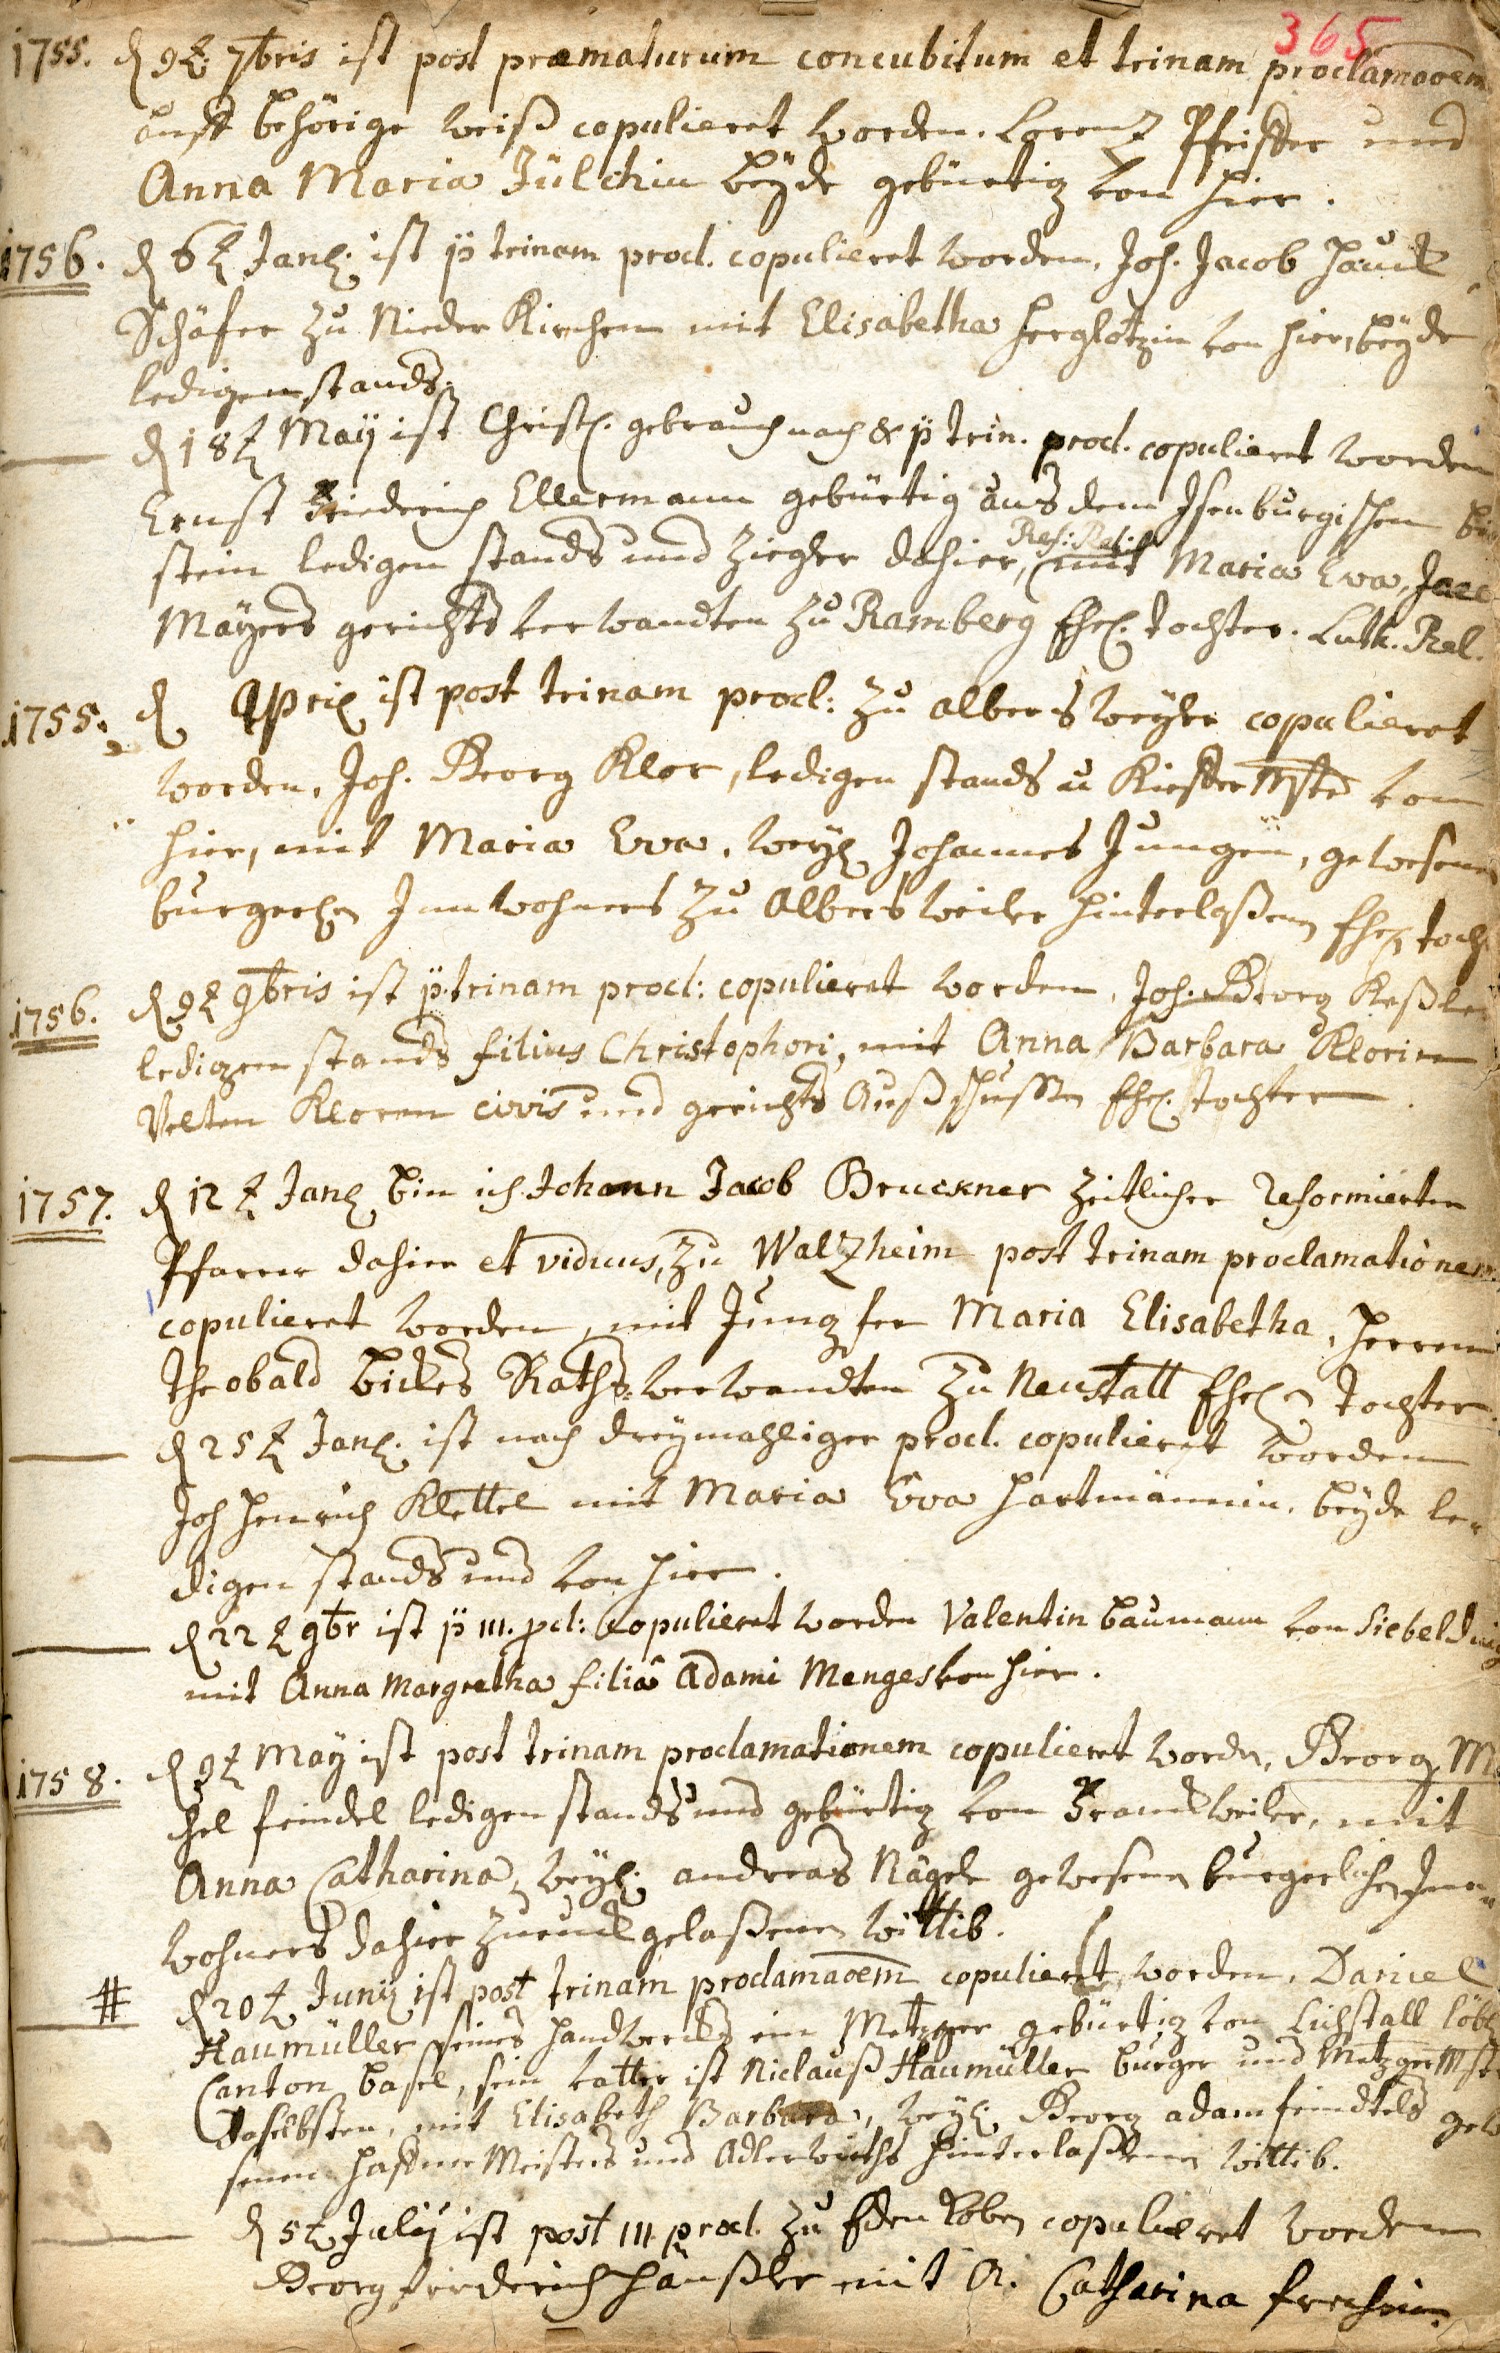 365
1755. d 9t. 7bris ist post præmaturum concubitum et trinam proclamaoem
auff behörige weiß copulieret worden. Lorenz Pfeiffer und
Anna Maria Jülchin beyde gebürtig von hier.
1756. d 6t Jan. ist p trinam procl. copulieret worden, Joh. Jacob Hauck
Schäfer zu Nieder Kirchen mit Elisabetha Herglotzin von hier, beyde
ledigen stands.
d 18t Maij ist Christl. gebrauch nach & p trin. procl. copulieret worden
Ernst Friederich Ellermann gebürtig aus dem Isenburgischen
stein ledigen stands und Ziegler dahier, Ref: Rel: mit Maria Eva, Jac
Mayers gerichts verwandten zu Ramberg Ehel. tochter. Luth. Rel.
1755. d April ist post trinam procl: zu Albersweyler copulieret
worden, Joh. Georg Klor, ledigen stands u Kieffer Mstr von
hier, mit Maria Eva, weyl Johannes Jungen, gewesenen
burgerln Innwohners zu Albersweiler hinterlaßenen Ehel toch
1756. d 9t 9bris ist p. trinam procl: copulieret worden, Joh. Georg Keßler
ledigen stands filius Christophori, mit Anna Barbara Klorin
Velten Kloren civis und gerichts Außschussen Ehel. tochter.
1757. d 12t Jan bin ich Johann Jacob Bruckner zeitlicher Reformierter
Pfarrer dahier et viduus, zu Walzheim post trinam proclamationem
copulieret worden, mit Jungfer Maria Elisabetha, Herren
Theobald Bickes Raths verwandten zu Neustatt Ehel. Tochter.
d 25t Jan. ist nach dreymahliger procl. copulieret worden
Joh Henrich Klettel mit Maria Eva Hartmännin, beyde le-
digen stands und von hier.
d 22t 9br ist p III. pcl: copulieret worden Valentin Baumann von Siebelding
mit Anna Margretha filia Adami Menges von hier.
1758. d 9t May ist post trinam proclamationem copulieret worden, Georg Mi
chel feindel ledigen stands und gebürtig von Franckweiler, mit
Anna Catharina, weyl. Andreas Nägele gewesenen burgerlichen Inn
wohners dahier zuruckgelaßenen wittib.
# d 20t Junij ist post trinam proclamaoem copulieret worden, Daniel
Haumüller seines Handwercks ein Metzger gebürtig von Lichstall löbl
Canton Basel, sein vatter ist Niclauß Haumüller burger und Metzger Mstr
daselbsten, mit Elisabeth Barbara, weyl. Georg Adam feindtels gew
senen Hafner Meisters und Adlerwirths hinterlaßenen wittib.
d 5t Julij ist post III procl. zu Edenkoben copulieret worden
Georg friederich Häußler mit A. Catharina frechin.